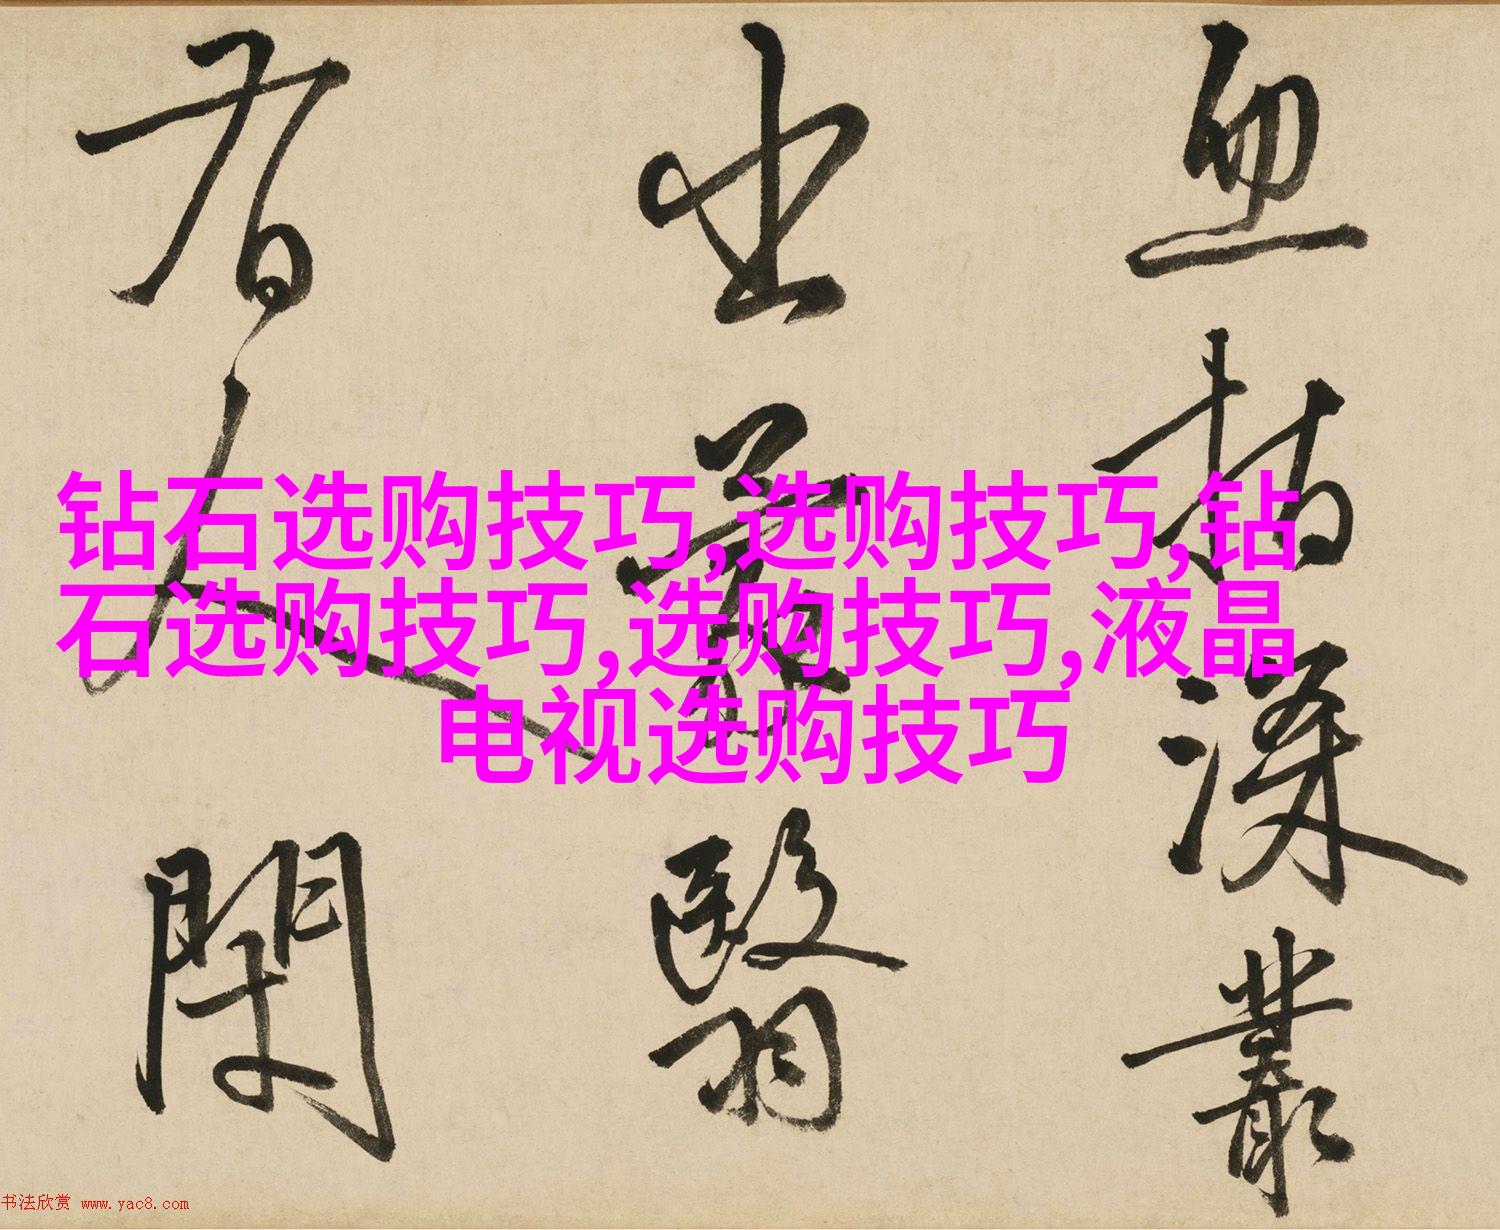 钻石选购技巧,选购技巧,钻
石选购技巧,选购技巧,液晶
电视选购技巧
深叢
翳
看人間
书法欣赏 www.yac8.com